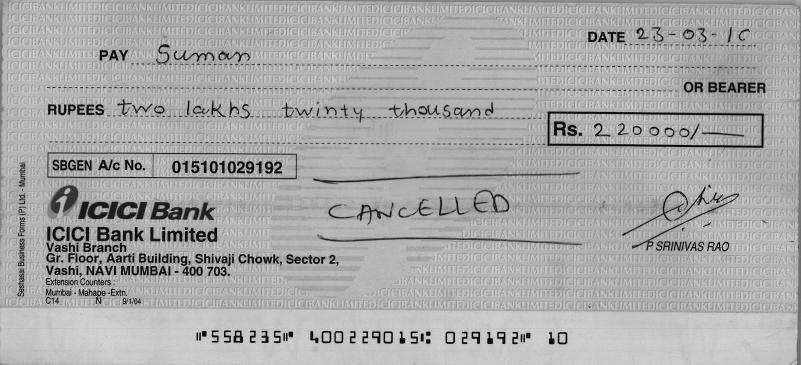 DATE 23-03-10
PAY Suman
OR BEARER
RUPEES two lakhs twinty thousand
Rs. 220000/-
SBGEN A/c No. 015101029192
CANCELLED
ICICI Bank
ICICI Bank Limited
Vashi Branch
Gr. Floor, Aarti Building, Shivaji Chowk, Sector 2,
Vashi, NAVI MUMBAI - 400 703.
Extension Counters :
Mumbai - Mahape -Extn.
C14 N 9/1/04
P SRINIVAS RAO
Seshasai Business Forms (P) Ltd. - Mumbai
⑈558235⑈ 400229015⑆ 029192⑈ 10